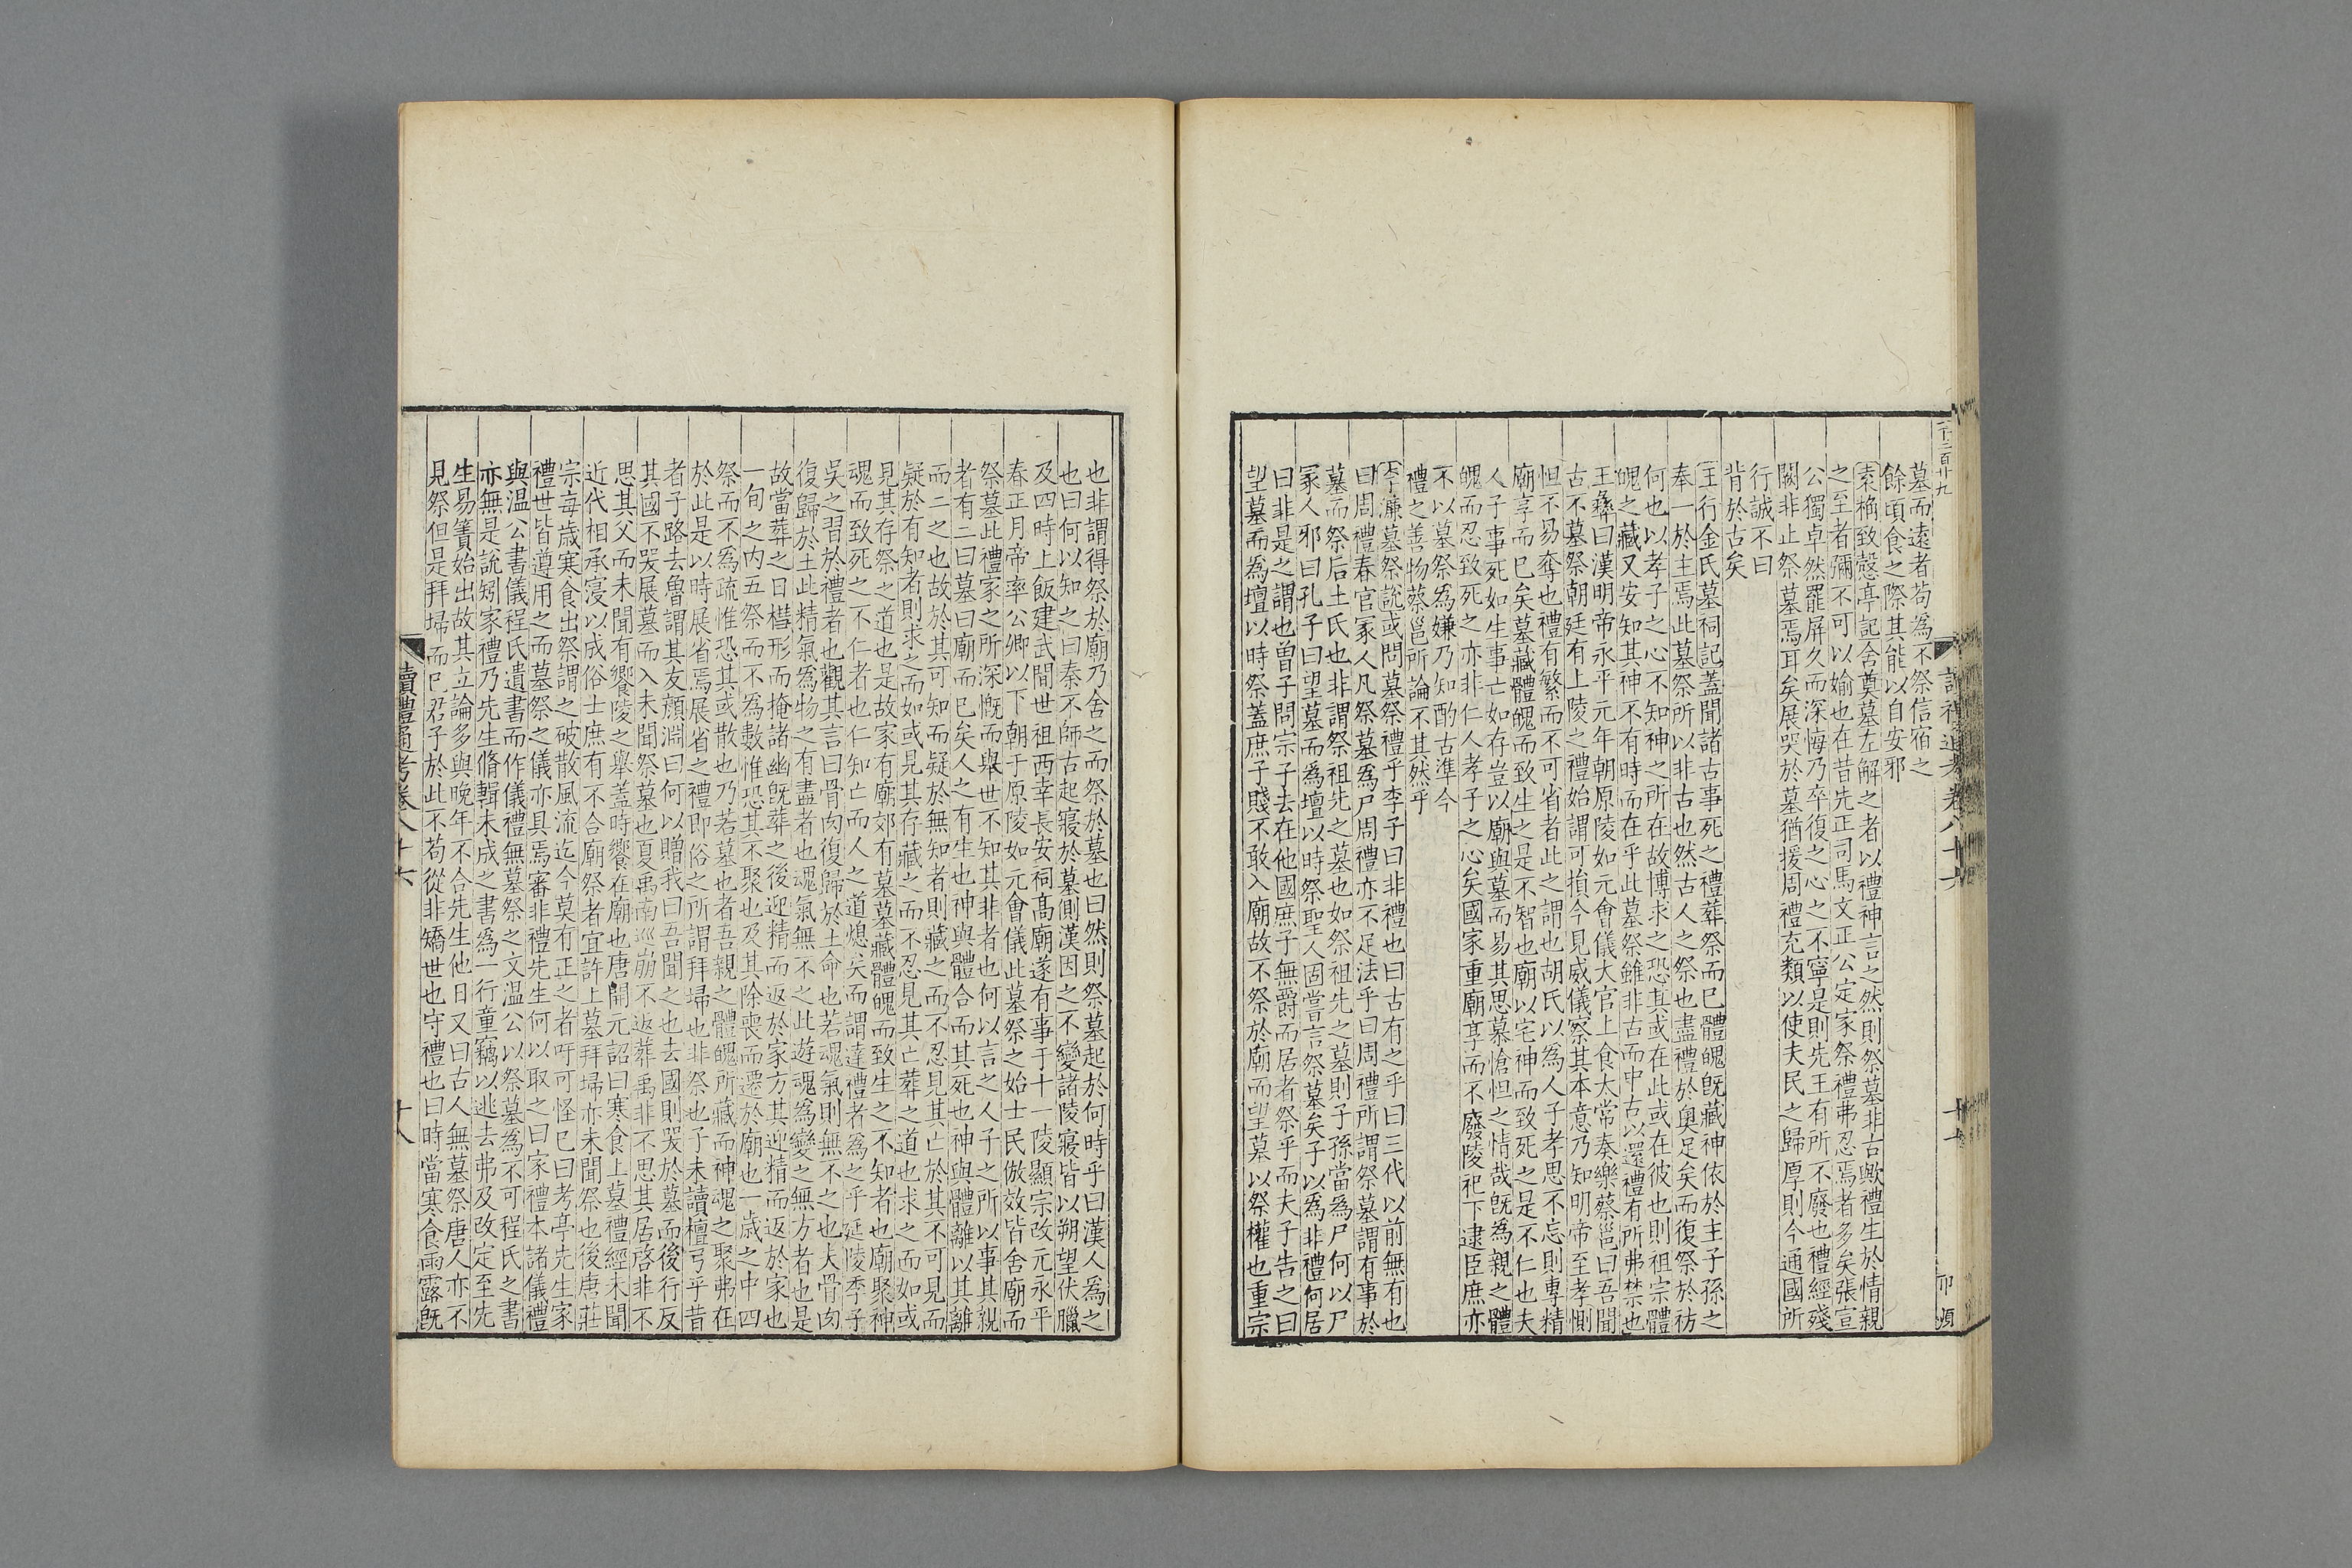 六百廿九
墓而遠者苟爲不祭信宿之
餘頃食之際其能以自安邪
索樀致慤亭記舍奠墓左解之者以禮神言之然則祭墓非古歟禮生於情親
之至者彌不可以媮也在昔先正司馬文正公定家祭禮弗忍焉者多矣張宣
公獨卓然罷屏久而深悔乃卒復之心之不寧是則先王有所不廢也禮經殘
闕非止祭墓焉耳矣展哭於墓猶援周禮充類以使夫民之歸厚則今通國所
行誠不曰
背於古矣
王行金氏墓祠記蓋聞諸古事死之禮葬祭而已體魄旣藏神依於主子孫之
奉一於主焉此墓祭所以非古也然古人之祭也盡禮於奧足矣而復祭於祊
何也以孝子之心不知神之所在故博求之恐其或在此或在彼也則祖宗體
魄之藏又安知其神不有時而在乎此墓祭雖非古而中古以還禮有所弗禁也
王彝曰漢明帝永平元年朝原陵如元會儀大官上食太常奏樂蔡邕曰吾聞
古不墓祭朝廷有上陵之禮始謂可損今見威儀察其本意乃知明帝至孝惻
怛不易奪也禮有繁而不可省者此之謂也胡氏以爲人子孝思不忘則專精
廟享而已矣墓藏體魄而致生之是不智也廟以宅神而致死之是不仁也夫
人子事死如生事亡如存豈以廟與墓而易其思慕愴怛之情哉旣爲親之體
魄而忍致死之亦非仁人孝子之心矣國家重廟享而不廢陵祀下逮臣庶亦
不以墓祭爲嫌乃知酌古準今
禮之善物蔡邕所論不其然乎
李濂墓祭說或問墓祭禮乎李子曰非禮也曰古有之乎曰三代以前無有也
曰周禮春官冢人凡祭墓爲尸周禮亦不足法乎曰周禮所謂祭墓謂有事於
墓而祭后土氏也非謂祭祖先之墓也如祭祖先之墓則子孫當爲尸何以尸
冢人邪曰孔子曰望墓而爲壇以時祭聖人固嘗言祭墓矣子以爲非禮何居
曰非是之謂也曾子問宗子去在他國庶子無爵而居者祭乎而夫子告之曰
望墓而爲壇以時祭蓋庶子賤不敢入廟故不祭於廟而望墓以祭權也重宗
也非謂得祭於廟乃舍之而祭於墓也曰然則祭墓起於何時乎曰漢人爲之
也曰何以知之曰秦不師古起寢於墓側漢因之不變諸陵寢皆以朔望伏臘
及四時上飯建武間世祖西幸長安祠高廟遂有事于十一陵顯宗改元永平
春正月帝率公卿以下朝于原陵如元會儀此墓祭之始士民倣效皆舍廟而
祭墓此禮家之所深慨而舉世不知其非者也何以言之人子之所以事其親
者有二曰墓曰廟而已矣人之有生也神與體合而其死也神與體離以其離
而二之也故於其可知而疑於無知者則藏之而不忍見其亡於其不可見而
疑於有知者則求之而如或見其存藏之而不忍見其亡葬之道也求之而如或
見其存祭之道也是故家有廟郊有墓墓藏體魄而致生之不知者也廟聚神
魂而致死之不仁者也仁知亡而人之道熄矣而謂達禮者爲之乎延陵季子
吳之習於禮者也觀其言曰骨肉復歸於土命也若魂氣則無不之也夫骨肉
復歸於土此精氣爲物之有盡者也魂氣無不之此遊魂爲變之無方者也是
故當葬之日槥形而掩諸幽旣葬之後迎精而返於家方其迎精而返於家也
一旬之内五祭而不爲數惟恐其不聚也及其除喪而遷於廟也一歲之中四
祭而不爲疏惟恐其或散也乃若墓也者吾親之體魄所藏而神魂之聚弗在
於此是以時展省焉展省之禮即俗之所謂拜埽也非祭也子未讀檀弓乎昔
者子路去魯謂其友顏淵曰何以贈我曰吾聞之也去國則哭於墓而後行反
其國不哭展墓而入未聞祭墓也夏禹南巡崩不返葬禹非不思其居啓非不
思其父而未聞有饗陵之舉蓋時饗在廟也唐開元詔曰寒食上墓禮經未聞
近代相承寖以成俗士庶有不合廟祭者宜許上墓拜埽亦未聞祭也後唐莊
宗每歲寒食出祭謂之破散風流迄今莫有正之者吁可怪已曰考亭先生家
禮世皆遵用之而墓祭之儀亦具焉審非禮先生何以取之曰家禮本諸儀禮
與温公書儀程氏遺書而作儀禮無墓祭之文温公以祭墓爲不可程氏之書
亦無是說矧家禮乃先生脩輯未成之書爲一行童竊以逃去弗及改定至先
生易簀始出故其立論多與晚年不合先生他日又曰古人無墓祭唐人亦不
見祭但是拜埽而已君子於此不苟從非矯世也守禮也曰時當寒食雨露旣
讀禮通考卷八十六
十八